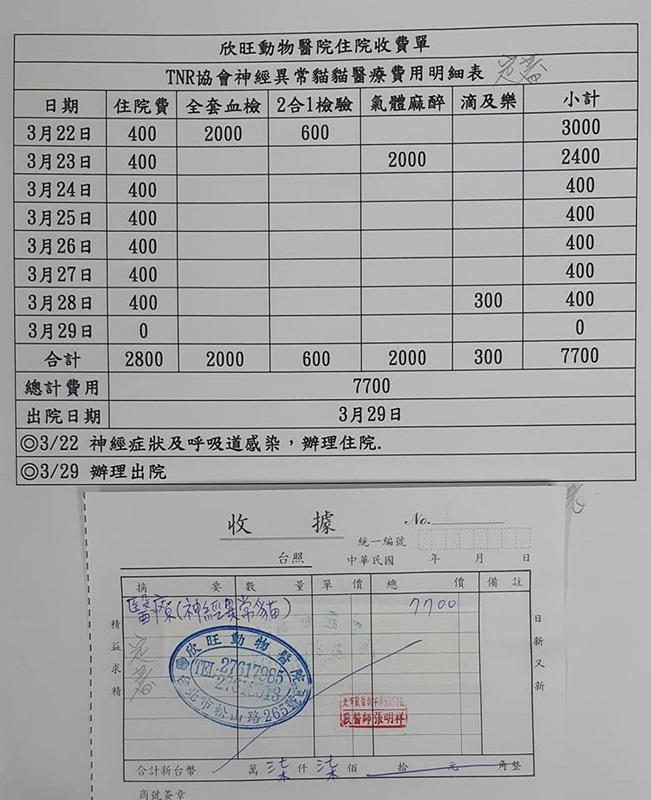 欣旺動物醫院住院收費單
TNR協會神經異常貓貓醫療費用明細表
日期 住院費 全套血檢 2合1檢驗 氣體麻醉 滴及樂 小計
3月22日 400 2000 600 3000
3月23日 400 2000 2400
3月24日 400 400
3月25日 400 400
3月26日 400 400
3月27日 400 400
3月28日 400 300 400
3月29日 0 0
合計 2800 2000 600 2000 300 7700
總計費用 7700
出院日期 3月29日
◎3/22 神經症狀及呼吸道感染，辦理住院.
◎3/29 辦理出院
收據 No.
統一編號
台照 中華民國 年 月 日
摘要 數量 單價 總價 備註
醫療(神經異常貓) 7700
精益求精
日新又新
欣旺動物醫院
TEL:27617985
台北市松山路265號
獸醫師張明科
合計新台幣 萬 柒仟 柒佰 拾 元 角整
商號簽章